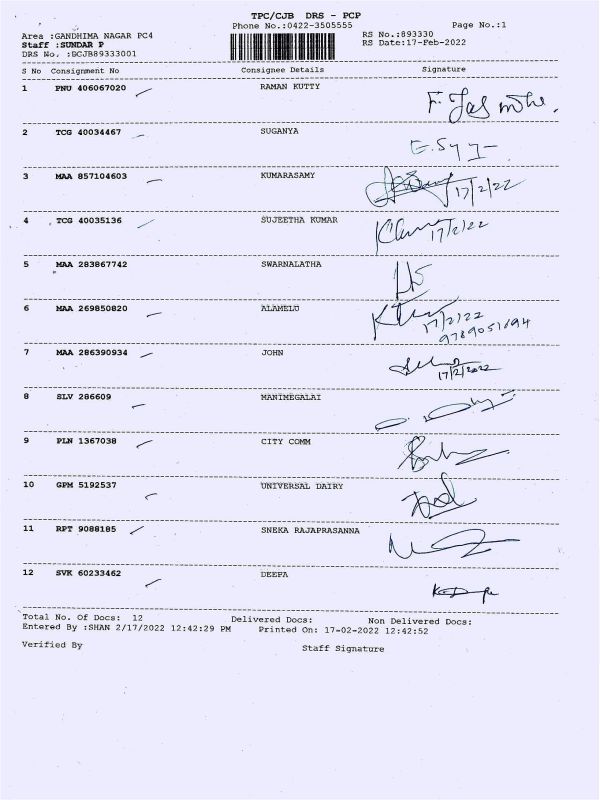 TPC/CJB DRS - PCP
Phone No.:0422-3505555 Page No.:1
Area :GANDHIMA NAGAR PC4 RS No.:893330
Staff :SUNDAR P RS Date:17-Feb-2022
DRS No. :DCJB89333001
S No Consignment No Consignee Details Signature
1 PNU 406067020 RAMAN KUTTY
2 TCG 40034467 SUGANYA
3 MAA 857104603 KUMARASAMY 17/2/22
4 TCG 40035136 SUJEETHA KUMAR 17/2/22
5 MAA 283867742 SWARNALATHA
6 MAA 269850820 ALAMELU 17/2/22
7 MAA 286390934 JOHN 17/2/2022
8 SLV 286609 MANIMEGALAI
9 PLN 1367038 CITY COMM
10 GPM 5192537 UNIVERSAL DAIRY
11 RPT 9088185 SNEKA RAJAPRASANNA
12 SVK 60233462 DEEPA
Total No. Of Docs: 12 Delivered Docs: Non Delivered Docs:
Entered By :SHAN 2/17/2022 12:42:29 PM Printed On: 17-02-2022 12:42:52
Verified By Staff Signature